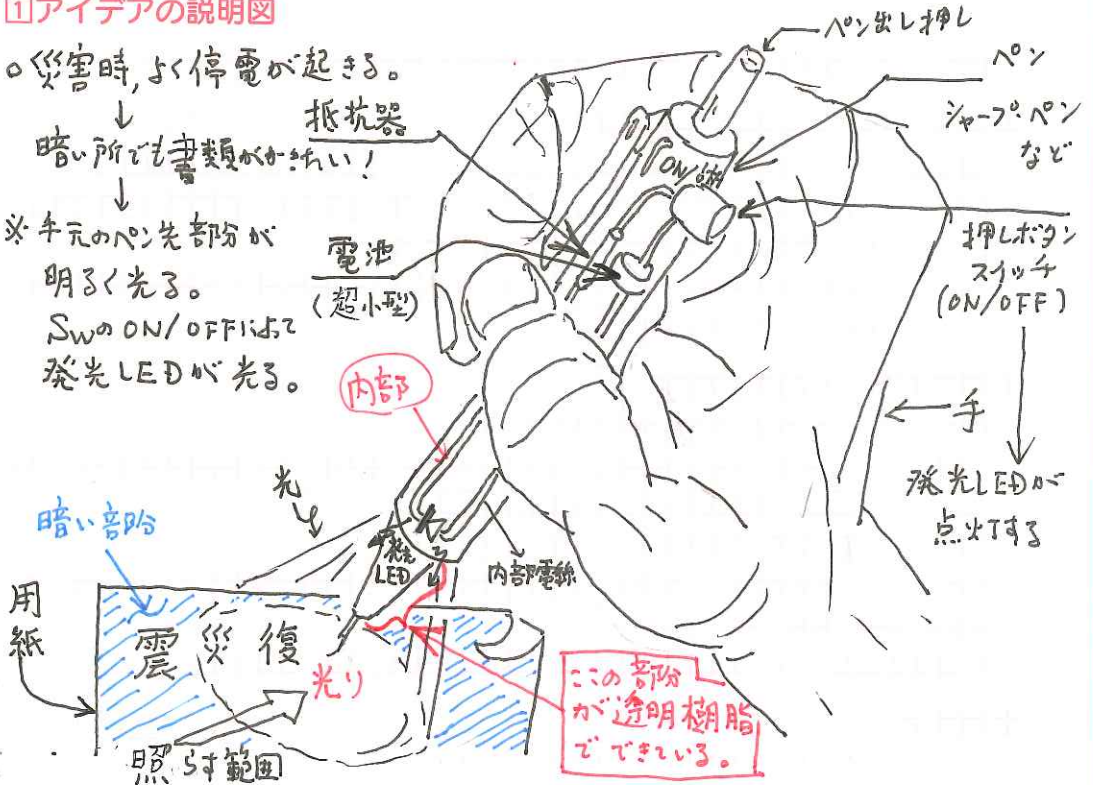 1アイデアの説明図
○災害時,よく停電が起きる。
↓
暗い所でも書類がかきたい!
↓
※手元のペン先部分が
明るく光る。
SwのON/OFFによって
発光LEDが光る。
ペン出し押し
ペン
シャープペン
など
抵抗器
電池
(超小型)
ON/OFF
押しボタン
スイッチ
(ON/OFF)
手
発光LEDが
点灯する
内部
光
暗い部分
発光
LED
内部電線
用
紙
震災復
光り
照らす範囲
ここの部分
が透明樹脂
でできている。